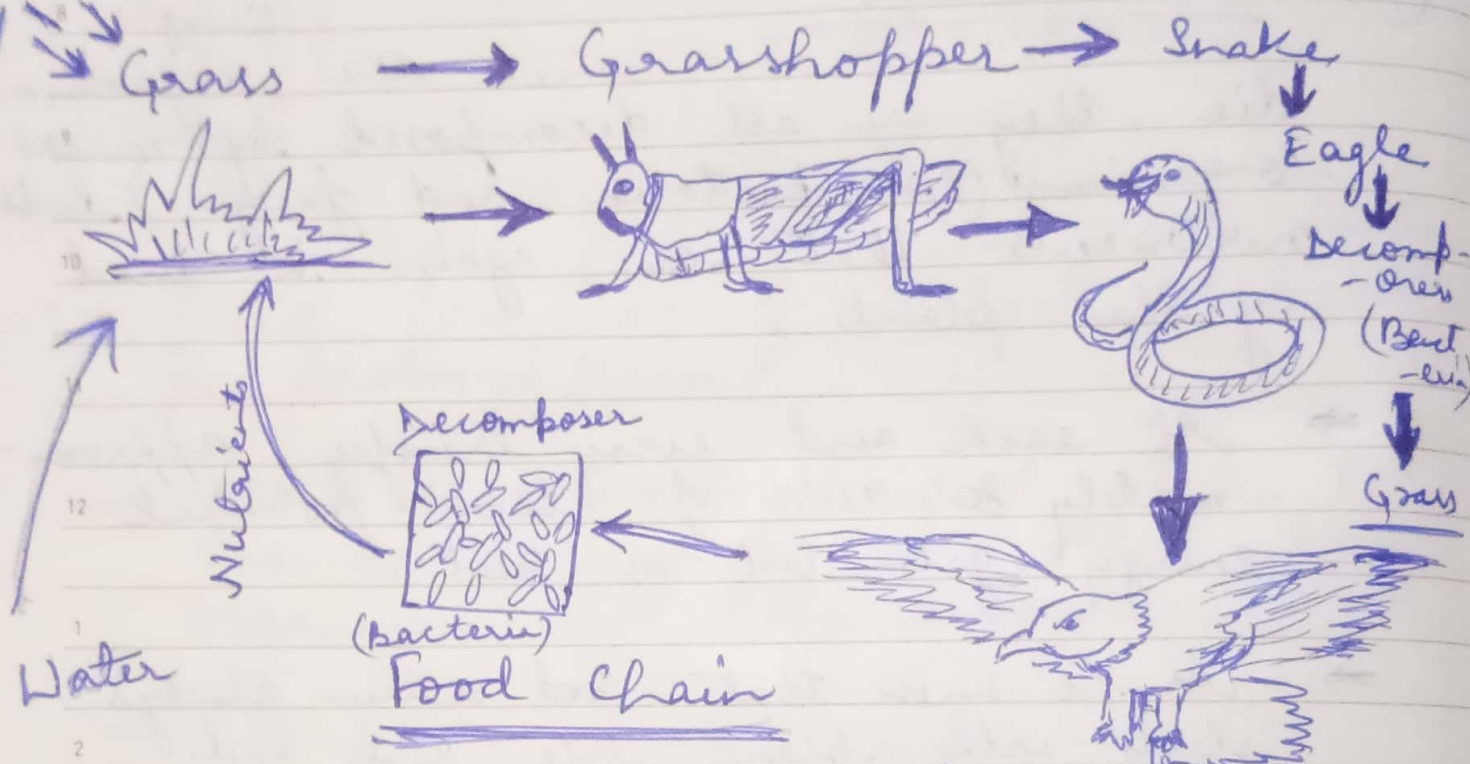 Grass → Grasshopper → Snake
↓
Eagle
↓
Decomp-
-ores
(Bact
-eria)
↓
Grass
Nutrients
Decomposer
(Bacteria)
Water
Food Chain
10
11
12
1
2